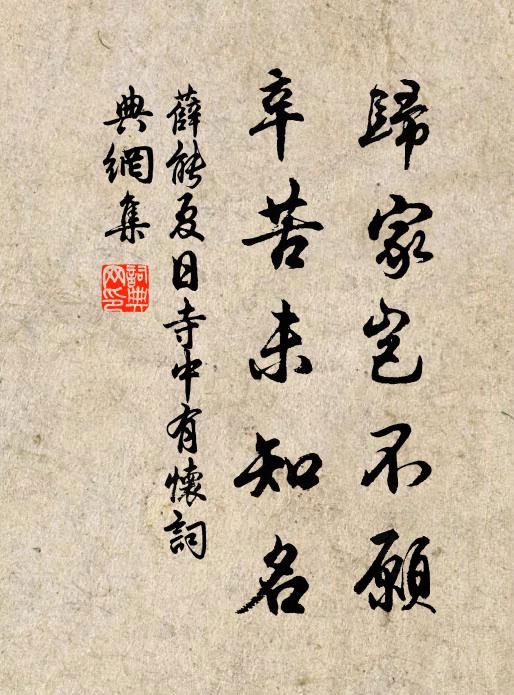 歸家豈不願
辛苦未知名
薛能夏日寺中有懷詞
典網集
詞典
网印